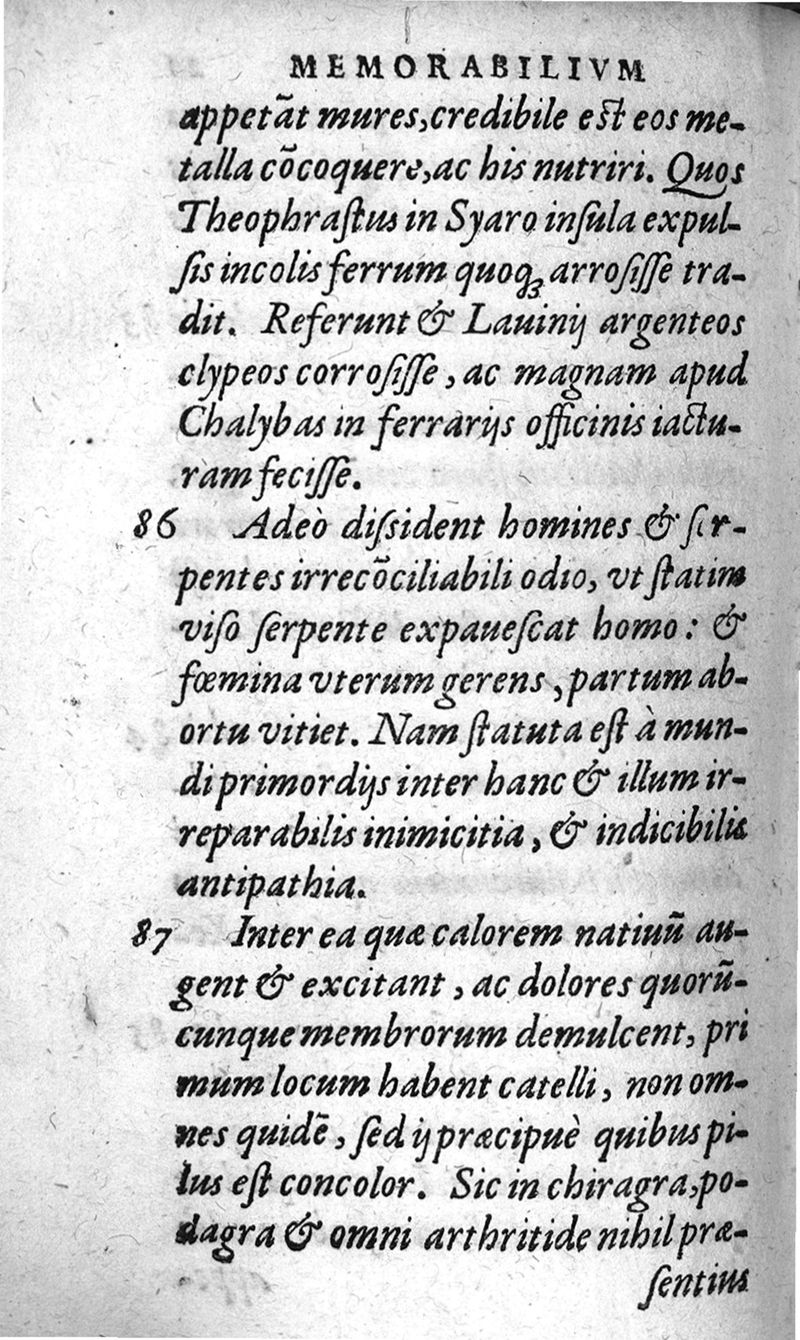 MEMORABILIVM
appetãt mures, credibile est eos me-
talla cõcoquere, ac his nutriri. Quos
Theophraſtus in Syaro inſula expul-
ſis incolis ferrum quoqꝫ arroſiſſe tra-
dit. Referunt & Lauinij argenteos
clypeos corroſiſſe, ac magnam apud
Chalybas in ferrarijs officinis iactu-
ram feciſſe.
86 Adeò diſsident homines & ſer-
pentes irrecõciliabili odio, vt ſtatim
viſo ſerpente expaueſcat homo: &
fœmina vterum gerens, partum ab-
ortu vitiet. Nam ſtatuta eſt à mun-
di primordijs inter hanc & illum ir-
reparabilis inimicitia, & indicibilis
antipathia.
87 Inter ea quæ calorem natiuũ au-
gent & excitant, ac dolores quorũ-
cunque membrorum demulcent, pri
mum locum habent catelli, non om-
nes quidẽ, ſed ij præcipuè quibus pi-
lus eſt concolor. Sic in chiragra, po-
dagra & omni arthritide nihil præ-
ſentius